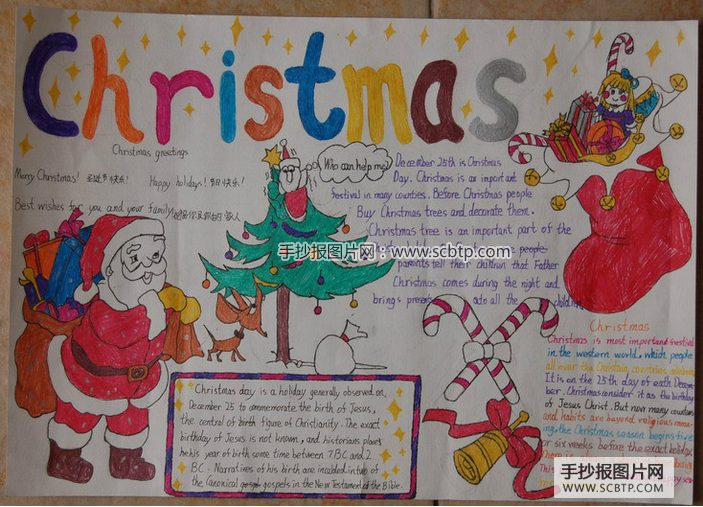 Christmas
Christmas greetings
Merry Christmas! 圣诞节快乐! Happy holidays! 节日快乐!
Best wishes for you and your family
Who can help me?
December 25th is Christmas
Day. Christmas is an important
festival in many counties. Before Christmas people
Buy Christmas trees and decorate them.
Christmas tree is an important part of the
people
parents tell their children that Father
Christmas comes during the night and
brings presents to all the children
手抄报图片网:www.scbtp.com
Christmas
Christmas is most important festival
in the western world, which people
all over the Christain countries celebrate
It is on the 25th day of each Decem
ber. Christmas consider it as the birthday
of Jesus Christ. But now many countries
and habits are beyond religious mean
ing, the Christmas season begins five
or six weeks before the exact holiday
There is
This
Christmas day is a holiday generally observed on
December 25 to ommemorate the birth of Jesus,
the central of birth figure of Christianity. The exact
birthday of Jesus is not known, and historians places
he his year of birth some time between 7 BC and 2
BC. Narratives of his birth are
the Canonical gospels in the New Testament of the Bible.
手抄报图片网
WWW.SCBTP.COM